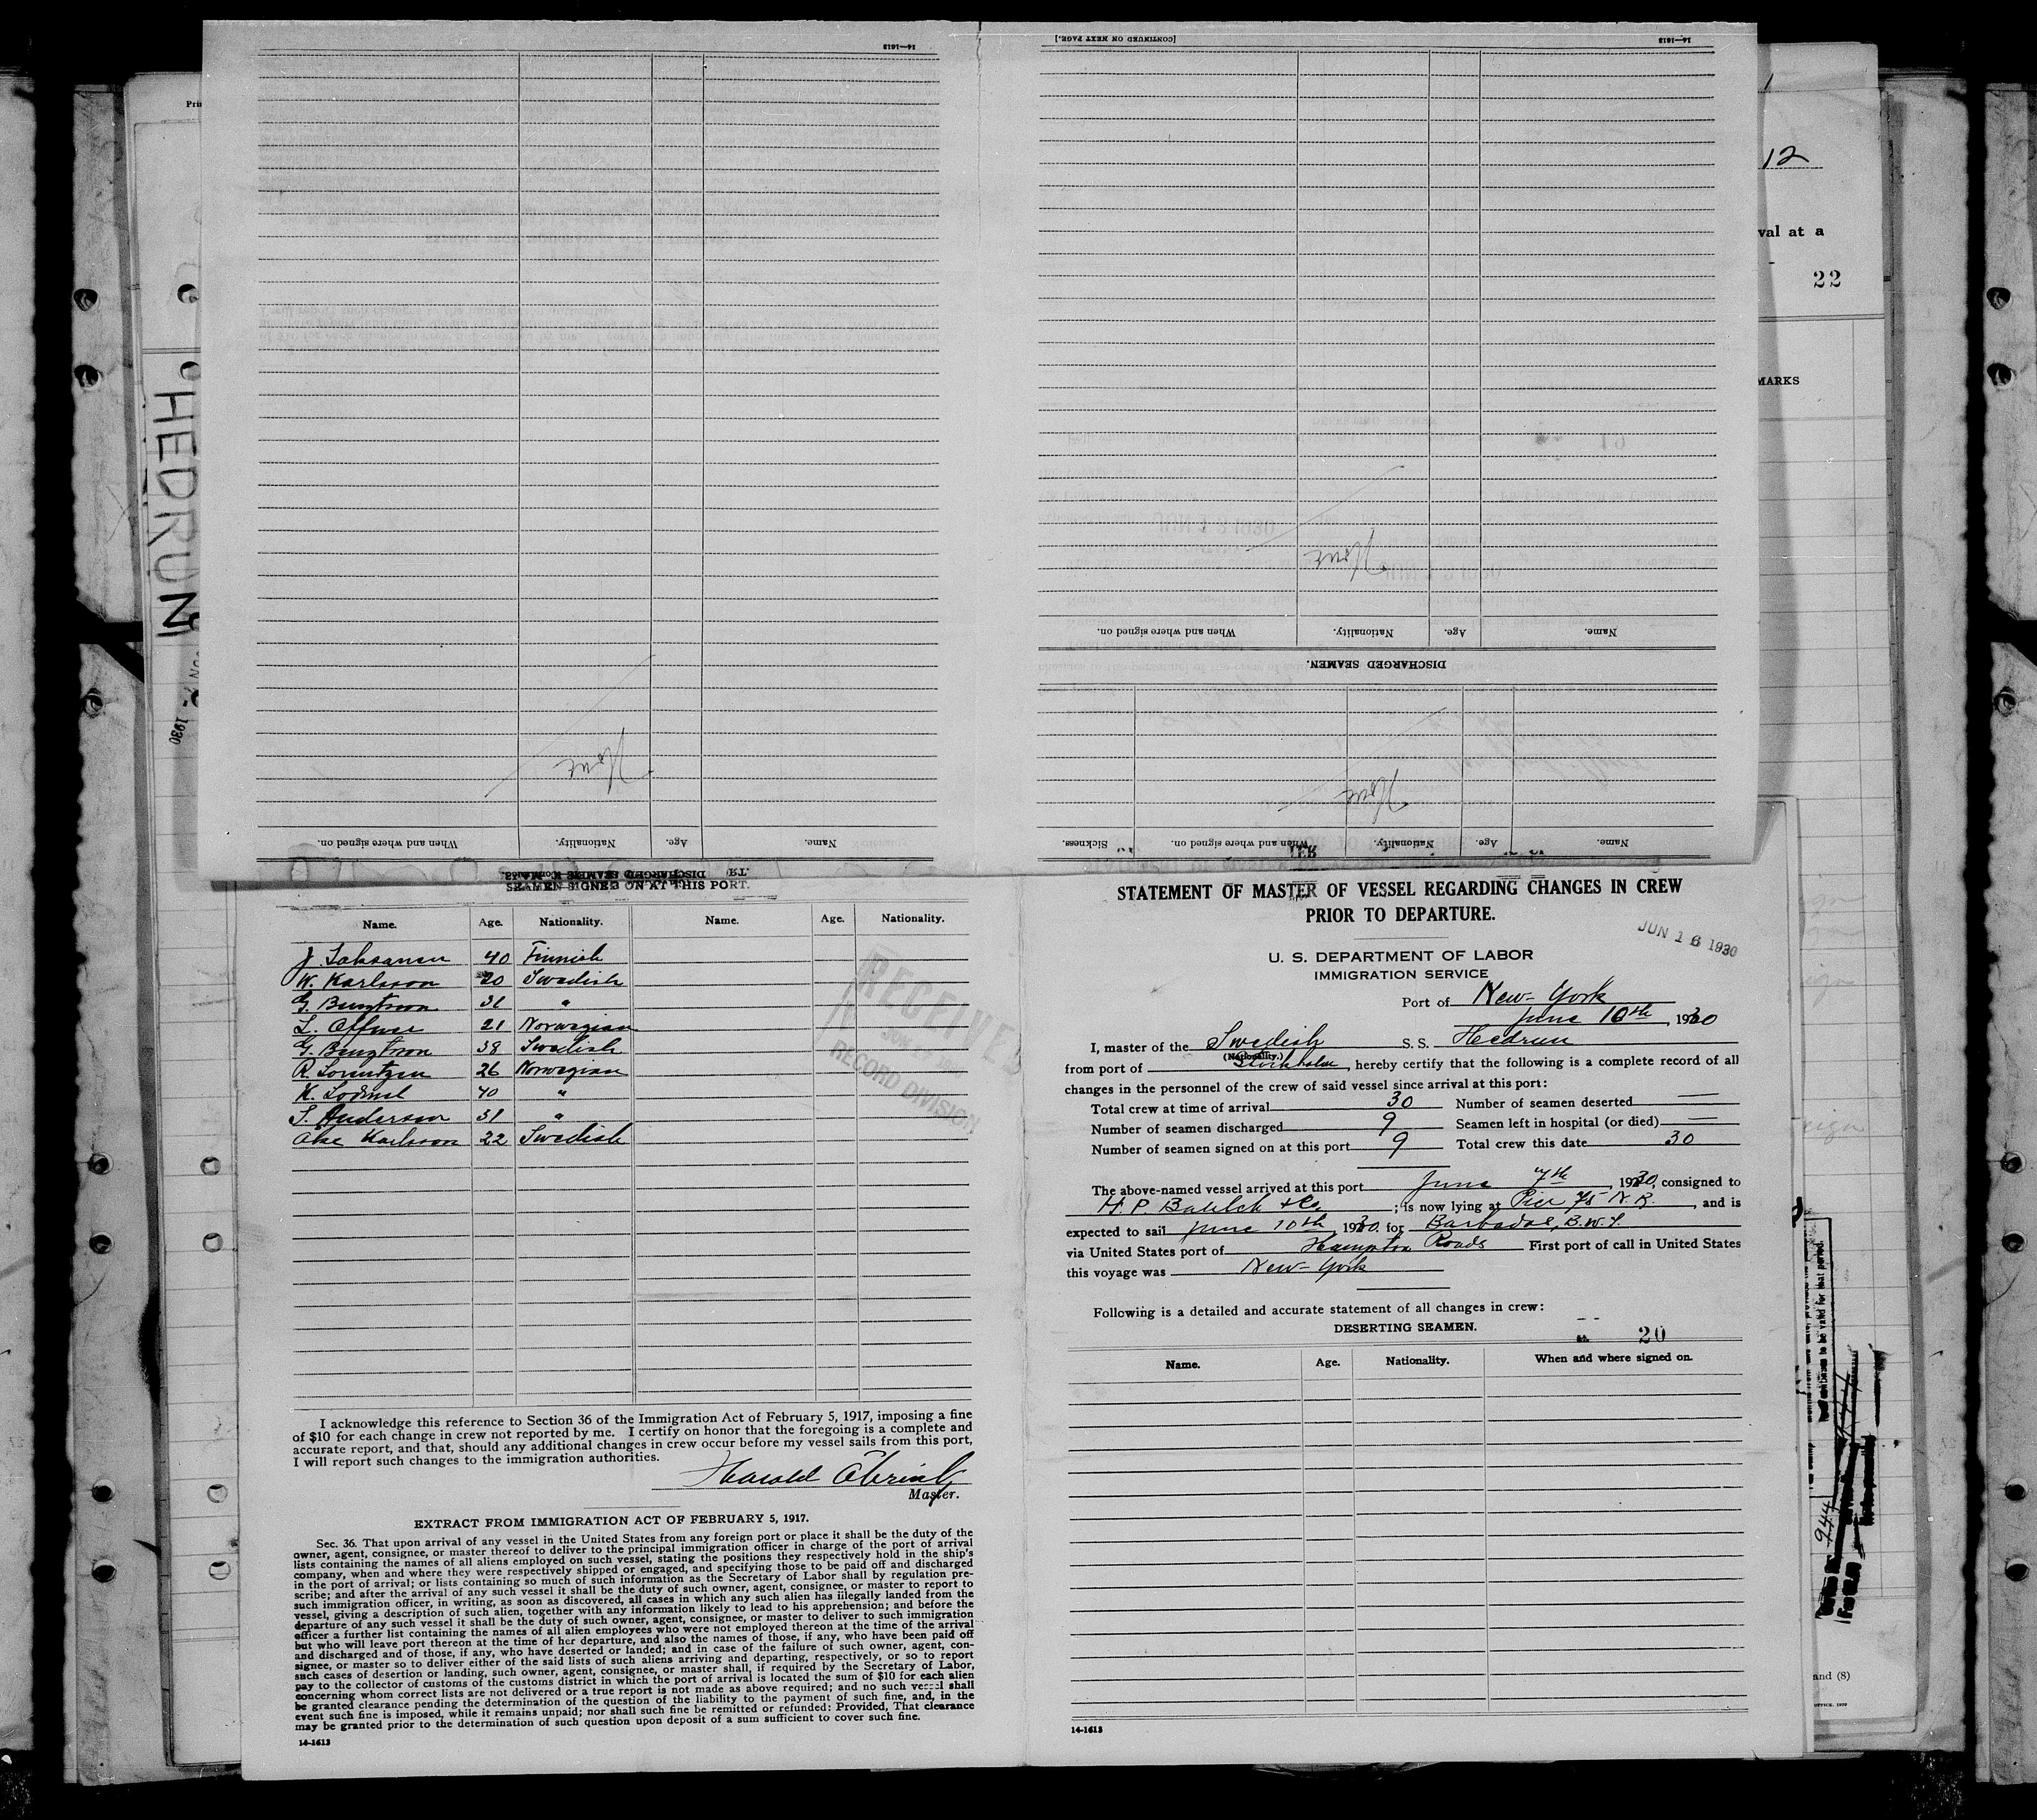 14—1613
[CONTINUED ON NEXT PAGE.]
14—1613
Name.
Age.
Nationality.
When and where signed on.
None
DISCHARGED SEAMEN.
Name.
Age.
Nationality.
When and where signed on.
None
Name.
Age.
Nationality.
When and where signed on.
Sickness.
None
12
val at a
22
MARKS
HEDRUN
1930
SEAMEN SIGNED ON AT THIS PORT.
Name. Age. Nationality. Name. Age. Nationality.
J. 40 Finnish
W. Karlsson 20 Swedish
G. Bengtsson "
L. 21 Norwegian
G. Bengtsson 38 Swedish
R. Lorentzen 26 Norwegian
K. 40 "
S. Anderson 31 "
Ake Karlsson 22 Swedish
RECEIVED
RECORD DIVISION
I acknowledge this reference to Section 36 of the Immigration Act of February 5, 1917, imposing a fine
of $10 for each change in crew not reported by me. I certify on honor that the foregoing is a complete and
accurate report, and that, should any additional changes in crew occur before my vessel sails from this port,
I will report such changes to the immigration authorities.
Harold
Master.
EXTRACT FROM IMMIGRATION ACT OF FEBRUARY 5, 1917.
Sec. 36. That upon arrival of any vessel in the United States from any foreign port or place it shall be the duty of the
owner, agent, consignee, or master thereof to deliver to the principal immigration officer in charge of the port of arrival
lists containing the names of all aliens employed on such vessel, stating the positions they respectively hold in the ship's
company, when and where they were respectively shipped or engaged, and specifying those to be paid off and discharged
in the port of arrival; or lists containing so much of such information as the Secretary of Labor shall by regulation pre-
scribe; and after the arrival of any such vessel it shall be the duty of such owner, agent, consignee, or master to report to
such immigration officer, in writing, as soon as discovered, all cases in which any such alien has illegally landed from the
vessel, giving a description of such alien, together with any information likely to lead to his apprehension; and before the
departure of any such vessel it shall be the duty of such owner, agent, consignee, or master to deliver to such immigration
officer a further list containing the names of all alien employees who were not employed thereon at the time of the arrival
but who will leave port thereon at the time of her departure, and also the names of those, if any, who have been paid off
and discharged and of those, if any, who have deserted or landed; and in case of the failure of such owner, agent, con-
signee, or master so to deliver either of the said lists of such aliens arriving and departing, respectively, or so to report
such cases of desertion or landing, such owner, agent, consignee, or master shall, if required by the Secretary of Labor,
pay to the collector of customs of the customs district in which the port of arrival is located the sum of $10 for each alien
concerning whom correct lists are not delivered or a true report is not made as above required; and no such vessel shall
be granted clearance pending the determination of the question of the liability to the payment of such fine, and, in the
event such fine is imposed, while it remains unpaid; nor shall such fine be remitted or refunded: Provided, That clearance
may be granted prior to the determination of such question upon deposit of a sum sufficient to cover such fine.
14-1613
STATEMENT OF MASTER OF VESSEL REGARDING CHANGES IN CREW
PRIOR TO DEPARTURE.
JUN 16 1930
U. S. DEPARTMENT OF LABOR
IMMIGRATION SERVICE
Port of New-York
June 10th, 1930
I, master of the Swedish S. S. Hedrun
(Nationality.)
from port of Stockholm, hereby certify that the following is a complete record of all
changes in the personnel of the crew of said vessel since arrival at this port:
Total crew at time of arrival 30 Number of seamen deserted —
Number of seamen discharged 9 Seamen left in hospital (or died) —
Number of seamen signed on at this port 9 Total crew this date 30
The above-named vessel arrived at this port June 7th, 1930, consigned to
H. P. & Co; is now lying at Pier 75 N. R., and is
expected to sail June 10th, 1930 for Barbados, B.W.I.
via United States port of Hampton Roads First port of call in United States
this voyage was New-York
Following is a detailed and accurate statement of all changes in crew:
DESERTING SEAMEN.
20
Name. Age. Nationality. When and where signed on.
14-1613
944
and (8)